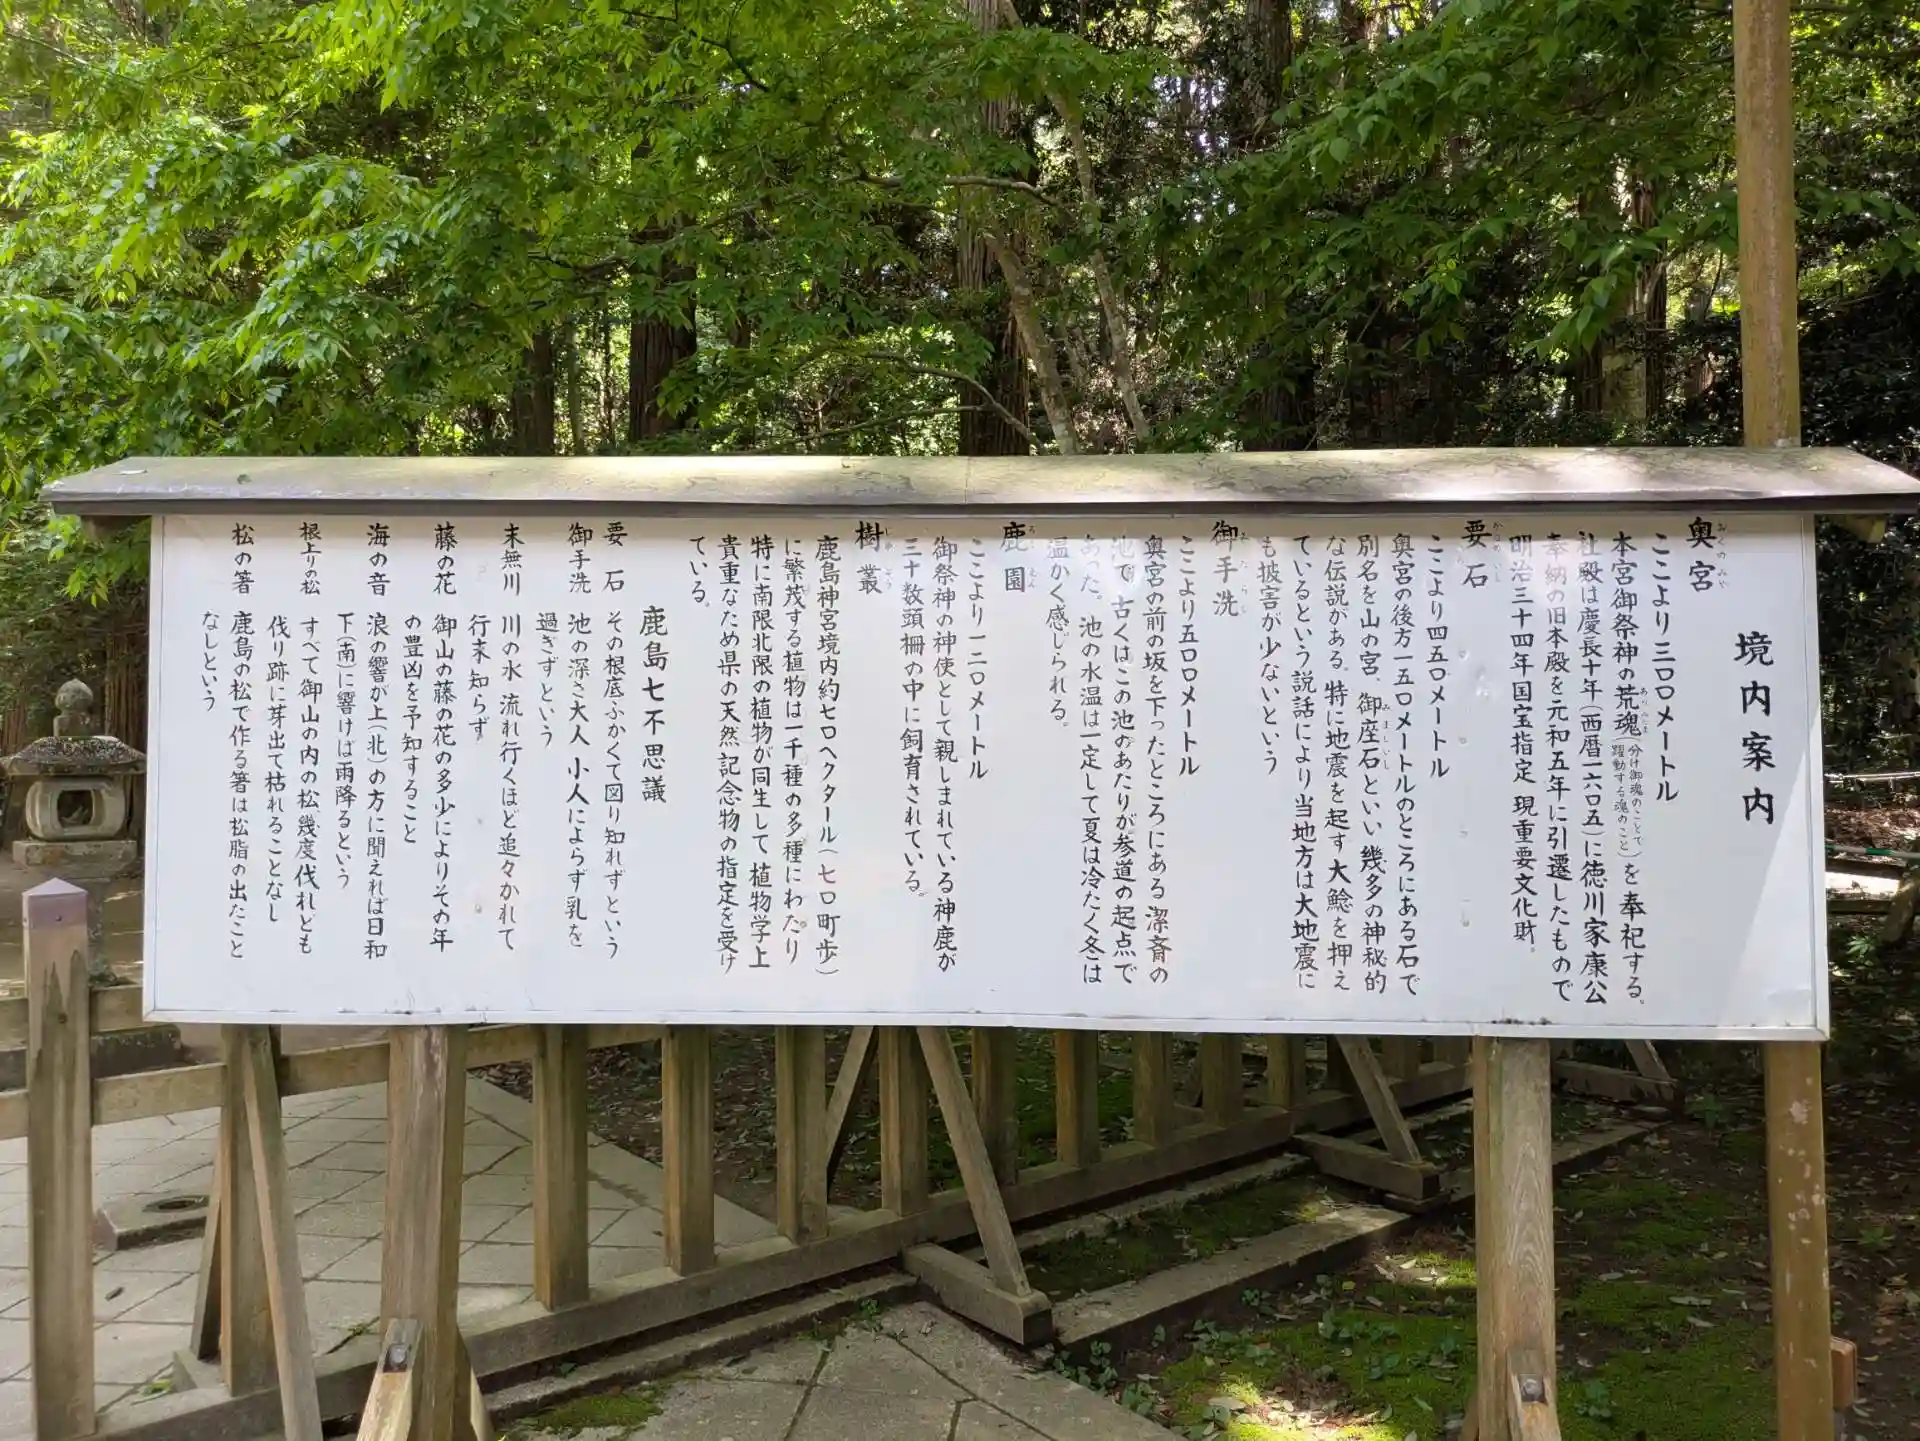 境内案内
奥宮
おくのみや
ここより三〇〇メートル
本宮御祭神の荒魂(分け御魂のことで躍動する魂のこと)を奉祀する。
あらみたま
社殿は慶長十年(西暦一六〇五)に徳川家康公
奉納の旧本殿を元和五年に引遷したもので
明治三十四年国宝指定 現重要文化財。
要石
かなめいし
ここより四五〇メートル
奥宮の後方一五〇メートルのところにある石で
別名を山の宮、御座石といい幾多の神秘的
みましいし
な伝説がある。特に地震を起す大鯰を押え
ているという説話により当地方は大地震に
も披害が少ないという
御手洗
みたらし
ここより五〇〇メートル
奥宮の前の坂を下ったところにある潔斎の
池で、古くはこの池のあたりが参道の起点で
あった。池の水温は一定して夏は冷たく冬は
温かく感じられる。
鹿園
ろくえん
ここより一二〇メートル
御祭神の神使として親しまれている神鹿が
三十数頭柵の中に飼育されている。
樹叢
じゅそう
鹿島神宮境内約七〇ヘクタール(七〇町歩)
に繁茂する植物は一千種の多種にわたり
特に南限北限の植物が同生して植物学上
貴重なため県の天然記念物の指定を受け
ている。
鹿島七不思議
要石 その根底ふかくて図り知れずという
御手洗 池の深さ大人小人によらず乳を
過ぎずという
末無川 川の水 流れ行くほど追々かれて
行末知らず
藤の花 御山の藤の花の多少によりその年
の豊凶を予知すること
海の音 浪の響が上(北)の方に聞えれば日和
下(南)に響けば雨降るという
根上りの松 すべて御山の内の松、幾度伐れども
伐り跡に芽出て枯れることなし
松の箸 鹿島の松で作る箸は松脂の出たこと
なしという